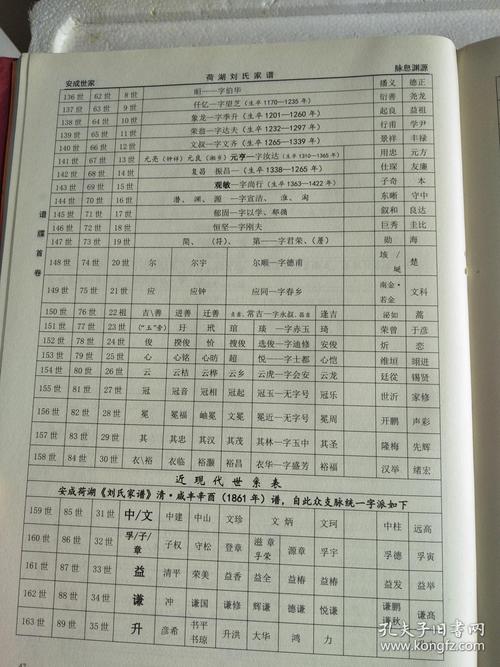 安成世家 荷湖刘氏家谱 脉息渊源
136世 62世 8世 昭一一字伯华 播义 德正
137世 63世 9世 仟亿一字望芝(生卒1170一1235年) 衍善 尧龙
138世 64世 10世 象龙一字季升(生卒1201一1260年) 起良 益祖
139世 65世 11世 荣翁一字达夫(生卒1232一1297年) 行甫 学尹
140世 66世 12世 文叔一字文齐(生卒1265一1339年) 景祥 丰禄
141世 67世 13世 元亮(钟祥) 元良(湘乡) 元亨一字汝达(生卒1310一1365年) 用忠 元方
142世 68世 14世 复昌 振昌一(生卒1338一1265年) 仕琛 友廉
143世 69世 15世 观敏一字尚行(生卒1363一1422年) 子奇 本
144世 70世 16世 潜、渊、源一字宣洁、淮、洵 东晰 守中
145世 71世 17世 郁固一字以学、郁循 叙和 良达
146世 72世 18世 恒坚一字刚夫 巨秀 圭比
147世 73世 19世 简、(符)、第一一字君荣、(屡) 勋 海
148世 74世 20世 尔 尔宇 尔顺一字德甫 埃/埏 楚
149世 75世 21世 应 应钟 应同一字春乡 南金·若金 文科
150世 76世 22祖 吉\善 进善 迁善 常吉一字永叔、昌吉 逢吉 泌如 蒿
151世 77世 23世 ("玉"旁) 玗 玳 琯 琰一字赤玉 琦 荣曾 于彦
152世 78世 24世 俊 揆俊 价 搜俊 选俊一字迪修 安俊 炘 恋
153世 79世 25世 心 心铭 心昉 超 悦一字士都 心恺 维垣 翊进
154世 80世 26世 云 云桔 云桦 云乡 云虎一字会安 云龙 廷從 锡贤
155世 81世 27世 冠 冠音 冠相 冠起 冠玉一无字号 冠乐 世沂 家修
156世 82世 28世 冕 冕福 岫冕 文冕 冕近一无字号 冕周 开鹏 声彩
157世 83世 29世 其 其忠 其汉 其茂 其林一字玉中 其圣 隆梅 先辉
158世 84世 30世 衣\裕 衣临 裕灏 裕昌 衣华一字盛芳 裕福 汉举 绪宏
谱牒首卷
近现代世系卷
安成荷湖《刘氏家谱》清·咸丰辛酉(1861年)谱,自此众支脉统一字派如下
159世 85世 31世 中/文 中建 中山 文珍 文炳 文珂 中柱 远高
160世 86世 32世 孚/子/章 子权 守松 登章 滋章 孚荣 源章 孚宇 孚德 孚寅
161世 87世 33世 益 清平 荣美 益香 益全 益椿 益椿 益发 益举
162世 88世 34世 谦 冲 谦国 谦修 辉谦 德谦 悦谦 谦鹏 谦秋 谦高
163世 89世 35世 升 彦希 书平 书琼 升洪 大华 鸿 力
孔夫子旧书网
kongfz.com